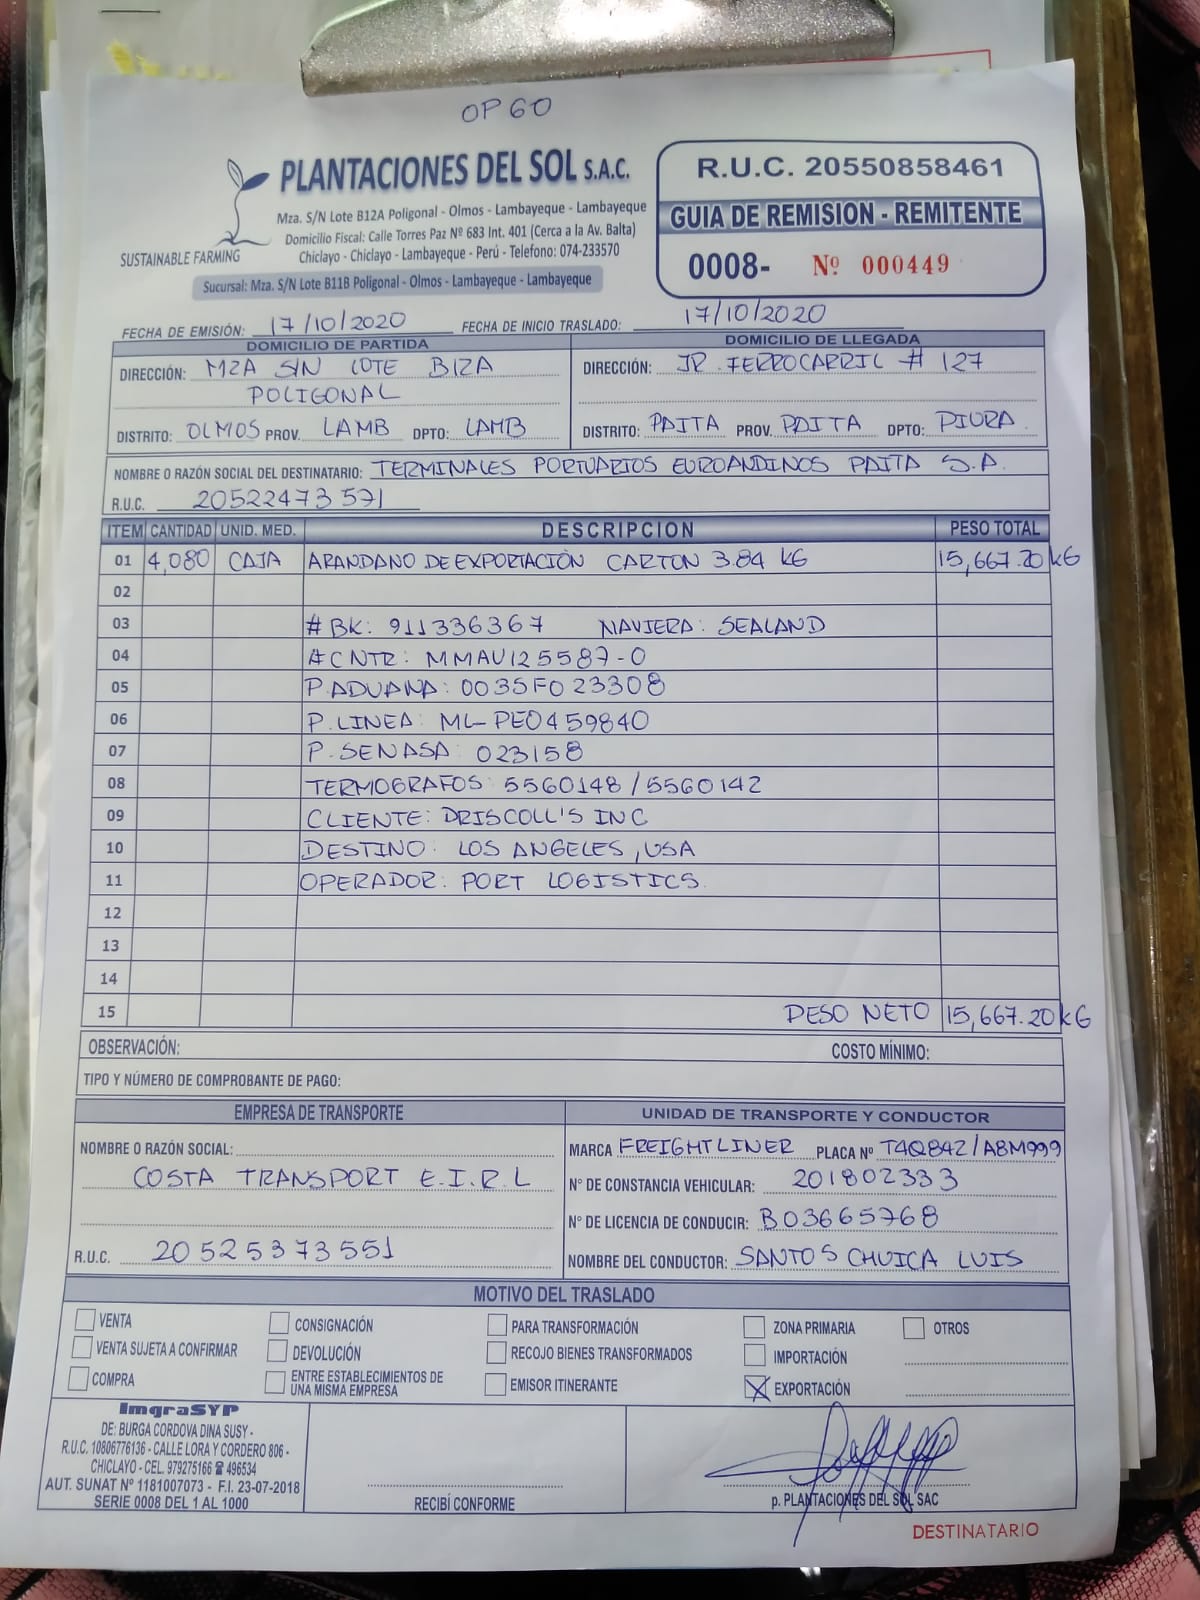 OP 60
PLANTACIONES DEL SOL S.A.C.
Mza. S/N Lote B12A Poligonal - Olmos - Lambayeque - Lambayeque
Domicilio Fiscal: Calle Torres Paz Nº 683 Int. 401 (Cerca a la Av. Balta)
Chiclayo - Chiclayo - Lambayeque - Perú - Telefono: 074-233570
SUSTAINABLE FARMING
Sucursal: Mza. S/N Lote B11B Poligonal - Olmos - Lambayeque - Lambayeque
R.U.C. 20550858461
GUIA DE REMISION - REMITENTE
0008- Nº 000449
FECHA DE EMISIÓN: 17/10/2020 FECHA DE INICIO TRASLADO: 17/10/2020
DOMICILIO DE PARTIDA
DIRECCIÓN: MZA S/N LOTE B12A
POLIGONAL
DISTRITO: OLMOS PROV. LAMB DPTO: LAMB
DOMICILIO DE LLEGADA
DIRECCIÓN: JR. FERROCARRIL # 127
DISTRITO: PAITA PROV. PAITA DPTO: PIURA
NOMBRE O RAZÓN SOCIAL DEL DESTINATARIO: TERMINALES PORTUARIOS EUROANDINOS PAITA S.A.
R.U.C. 20522473571
ITEM CANTIDAD UNID. MED. DESCRIPCION PESO TOTAL
01 4,080 CAJA ARANDANO DE EXPORTACIÓN CARTON 3.84 KG 15,667.20 KG
02
03 # BK: 911336367 NAVIERA: SEALAND
04 # CNTR: MMAU125587-0
05 P. ADUANA: 0035F023308
06 P. LINEA: ML-PE0459840
07 P. SENASA: 023158
08 TERMOGRAFOS: 5560148 / 5560142
09 CLIENTE: DRISCOLL'S INC
10 DESTINO: LOS ANGELES, USA
11 OPERADOR: PORT LOGISTICS.
12
13
14
15 PESO NETO 15,667.20 KG
OBSERVACIÓN: COSTO MÍNIMO:
TIPO Y NÚMERO DE COMPROBANTE DE PAGO:
EMPRESA DE TRANSPORTE
NOMBRE O RAZÓN SOCIAL:
COSTA TRANSPORT E.I.R.L
R.U.C. 20525373551
UNIDAD DE TRANSPORTE Y CONDUCTOR
MARCA FREIGHTLINER PLACA Nº T4Q842/A8M999
N° DE CONSTANCIA VEHICULAR: 201802333
N° DE LICENCIA DE CONDUCIR: B03665768
NOMBRE DEL CONDUCTOR: SANTOS CHUICA LUIS
MOTIVO DEL TRASLADO
VENTA CONSIGNACIÓN PARA TRANSFORMACIÓN ZONA PRIMARIA OTROS
VENTA SUJETA A CONFIRMAR DEVOLUCIÓN RECOJO BIENES TRANSFORMADOS IMPORTACIÓN
COMPRA ENTRE ESTABLECIMIENTOS DE
UNA MISMA EMPRESA EMISOR ITINERANTE X EXPORTACIÓN
ImgraSYP
DE: BURGA CORDOVA DINA SUSY -
R.U.C. 10806776136 - CALLE LORA Y CORDERO 806 -
CHICLAYO - CEL. 979275166 ☎ 496534
AUT. SUNAT Nº 1181007073 - F.I. 23-07-2018
SERIE 0008 DEL 1 AL 1000
RECIBÍ CONFORME
p. PLANTACIONES DEL SOL SAC
DESTINATARIO